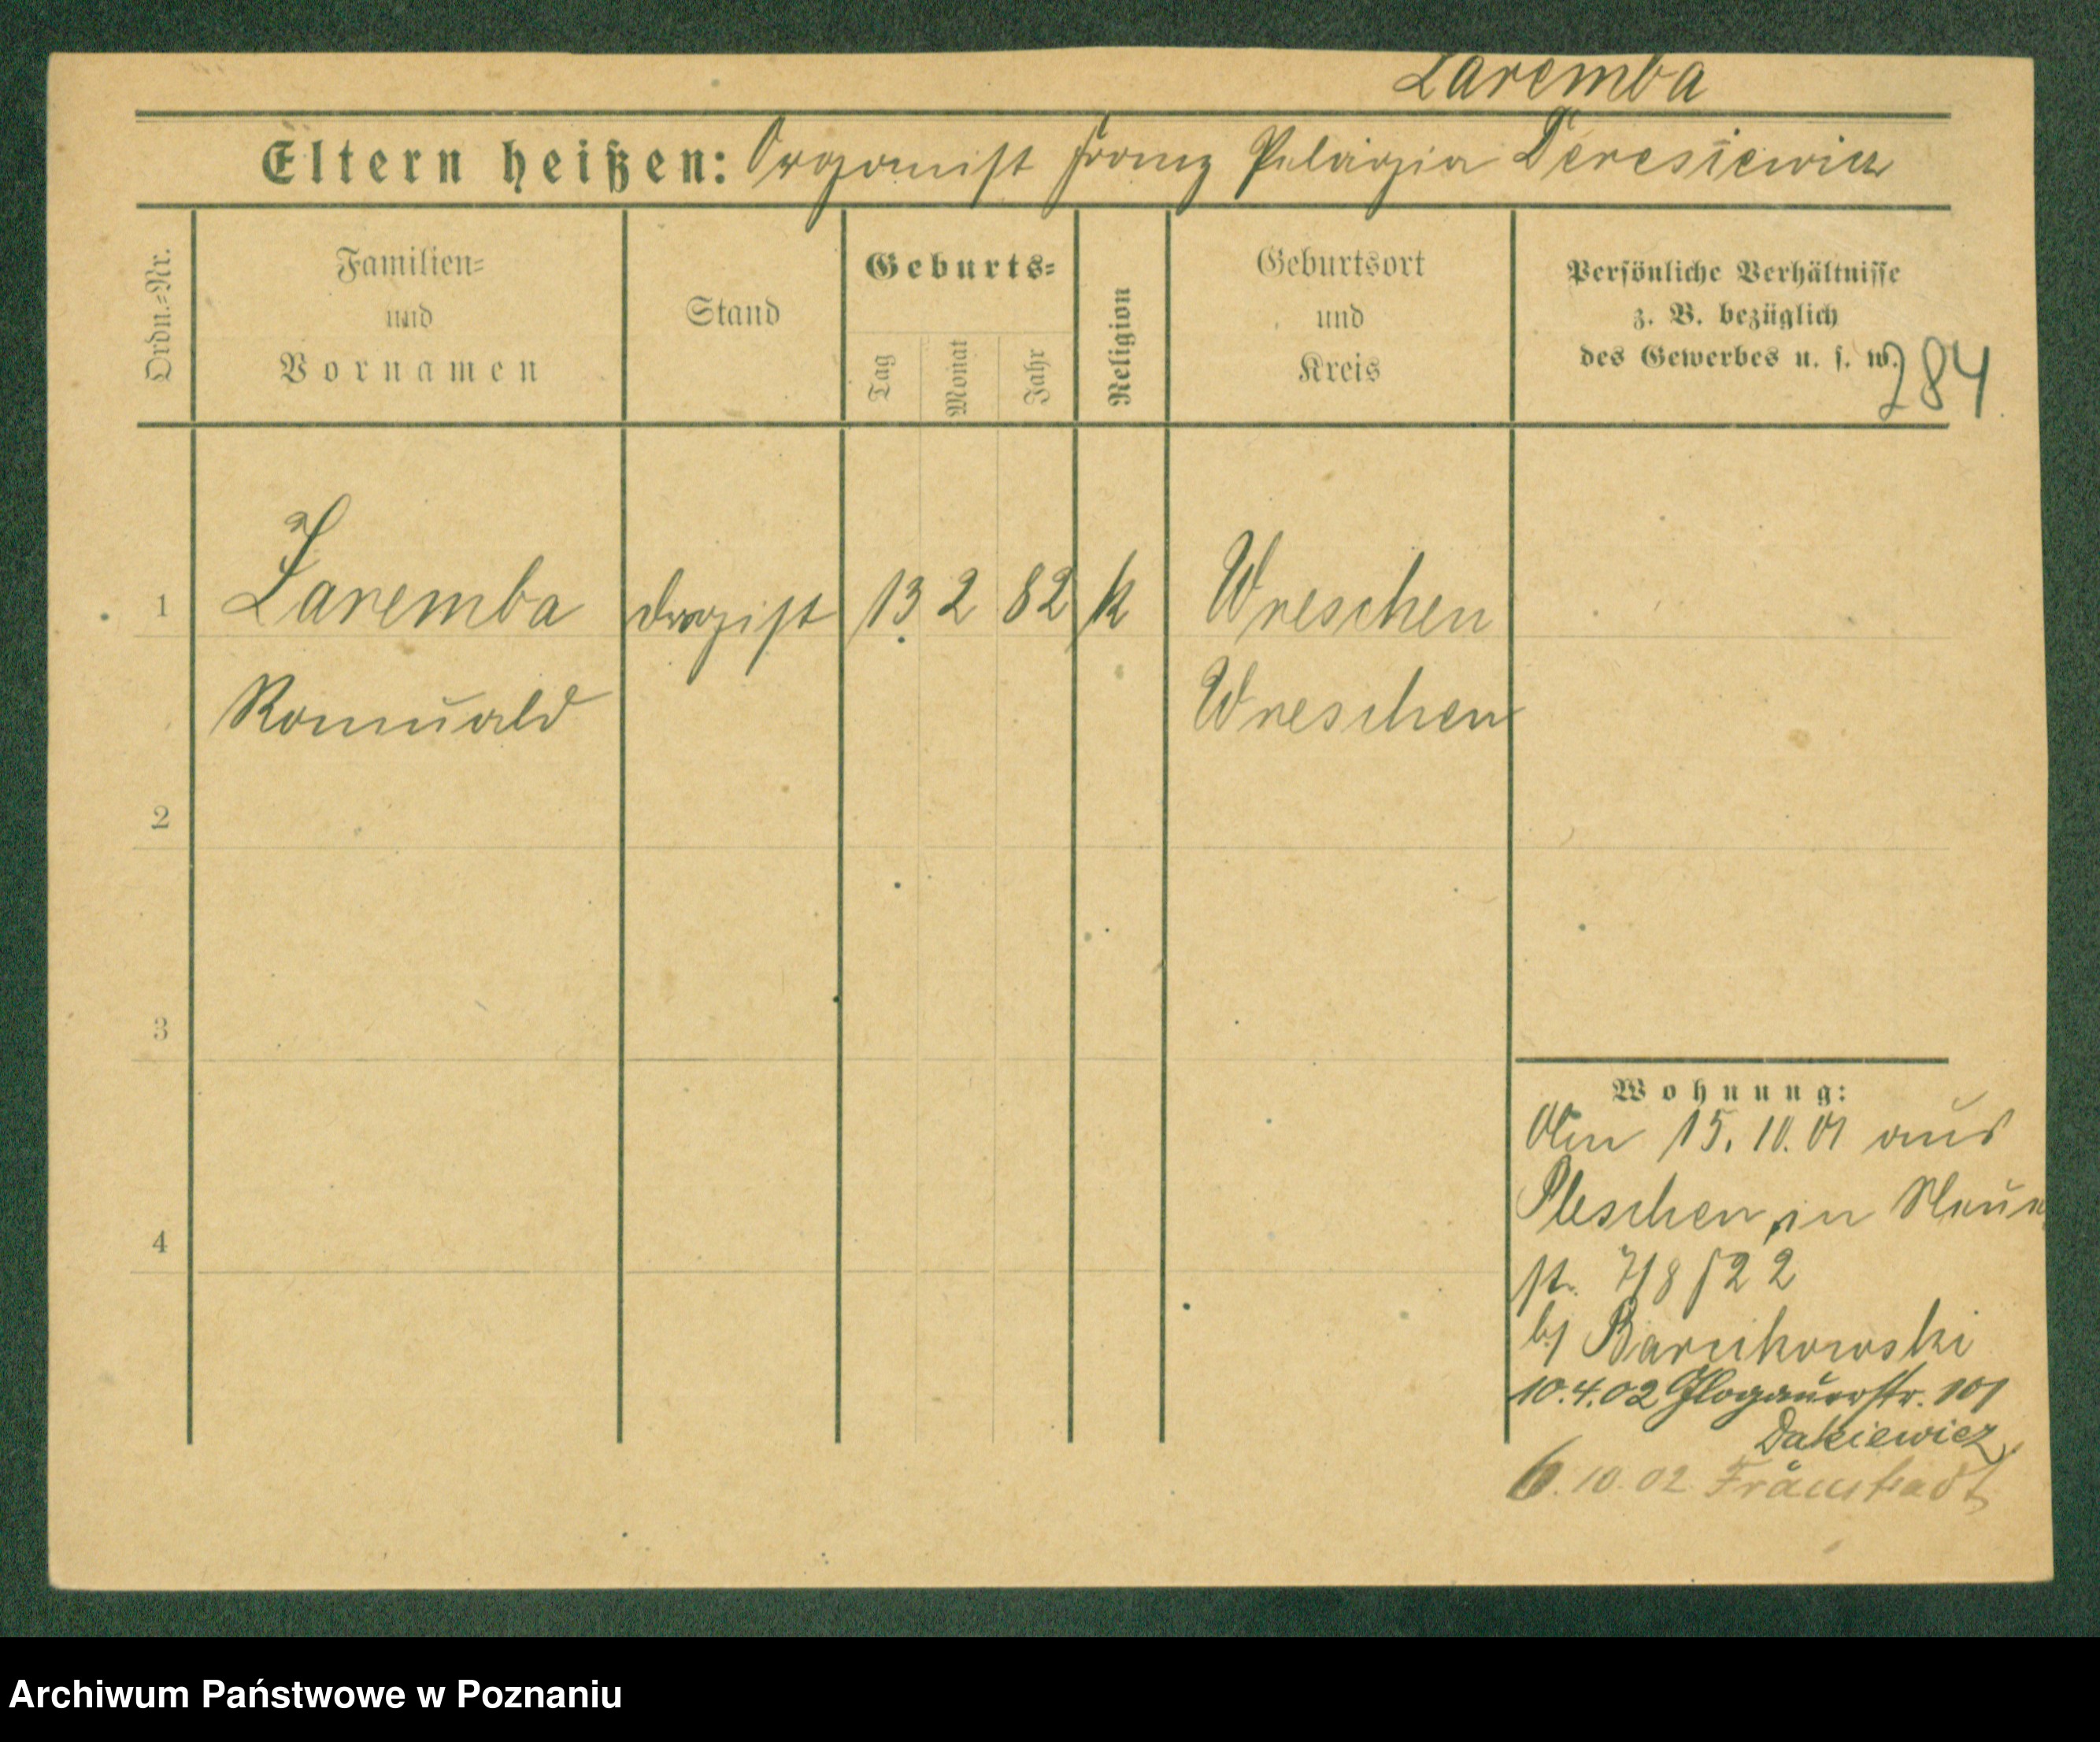 Zaremba
Eltern heißen: Organist Franz Pelagia Deresiewicz
Ordn.=Nr.
Familien=
und
Vornamen
Stand
Geburts=
Tag
Monat
Jahr
Religion
Geburtsort
und
Kreis
Persönliche Verhältnisse
z. B. bezüglich
des Gewerbes u. s. w.
284
1 Zaremba Drogist 13 2 82 k Wreschen
Romuald Wreschen
2
3
4
Wohnung:
Am 15. 10. 01 aus
Pleschen, in
str. 7/8 22
b/ Barcikowski
10.4.02 Glogauerstr. 101
Dakiewicz
6.10.02 Fraustadt
Archiwum Państwowe w Poznaniu